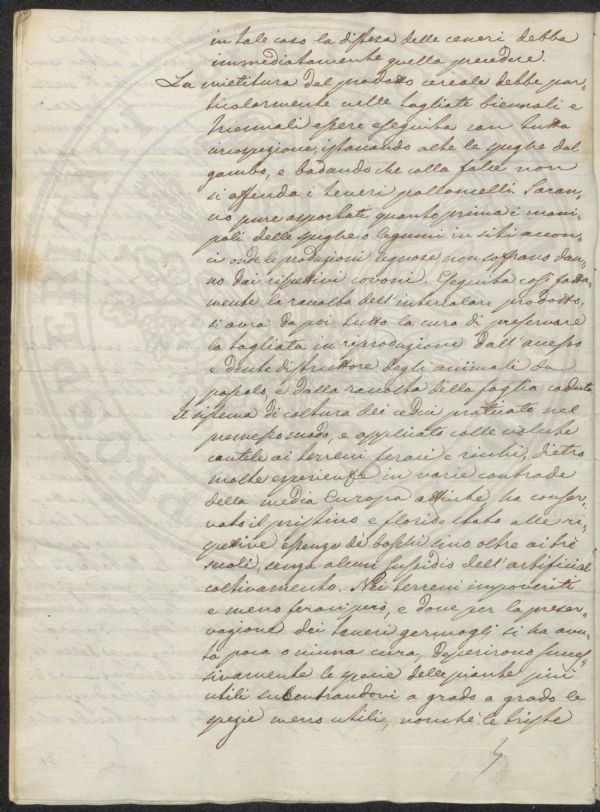 in tale caso la distesa delle ceneri debba
immediatamente quella precedere.
La mietitura del prodotto cereale debbe par-
ticolarmente nelle tagliate biennali e
triennali essere eseguita con tutta
circospezione, istaurando alte le spighe dal
gambo, e badando che colla falce non
si offenda i teneri polloncelli. Saran-
no pure asportati quanto prima i mani-
poli delle spighe o legumi in siti accon-
ci onde le produzioni legnose non soffrano dan-
no dai rispettivi covoni. Eseguita così fatta-
mente la raccolta dell'intercalare prodotto,
si avrà da poi tutto la cura di preservare
la tagliata in riproduzione dall'accesso
e dente distruttore degli animali da
pascolo e dalla raccolta della foglia caduta
Il sistema di coltura dei cedui praticato nel
premesso modo, e applicato colle volute
cautele ai terreni feraci e ricchi, dietro
molte esperienze in varie contrade
della media Europa attinte, ha conser-
vato il pristino e florido stato alle ri-
spettive essenze di boschi sino oltre ai tre
secoli, senza alcun sussidio dell'artificial
coltivamento. Nei terreni impoveriti
e meno feraci però, e dove per la preser-
vazione dei teneri germogli si ha avu-
to poca o niuna cura, deperirono succes-
sivamente le specie delle piante più
utili subentrandovi a grado a grado le
spezie meno utili, nonchè le triste